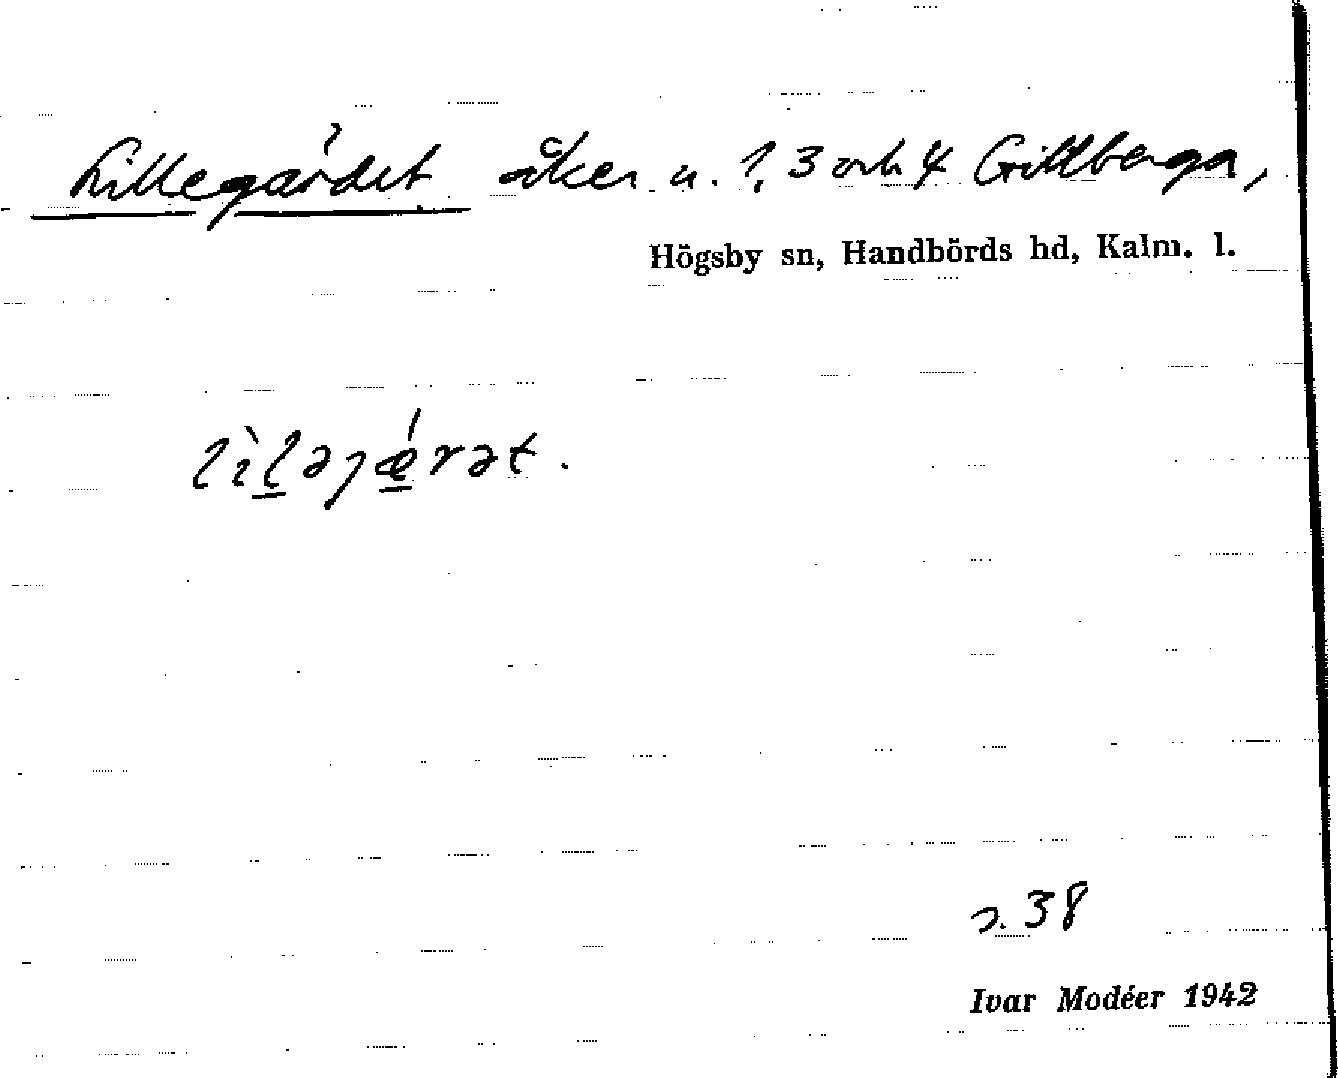 Lillegärdet åker u. 1, 3 och 4 Gillberga,
Högsby sn, Handbörds hd, Kalm. l.
lìləjǽrət.
s. 38
Ivar Modéer 1942